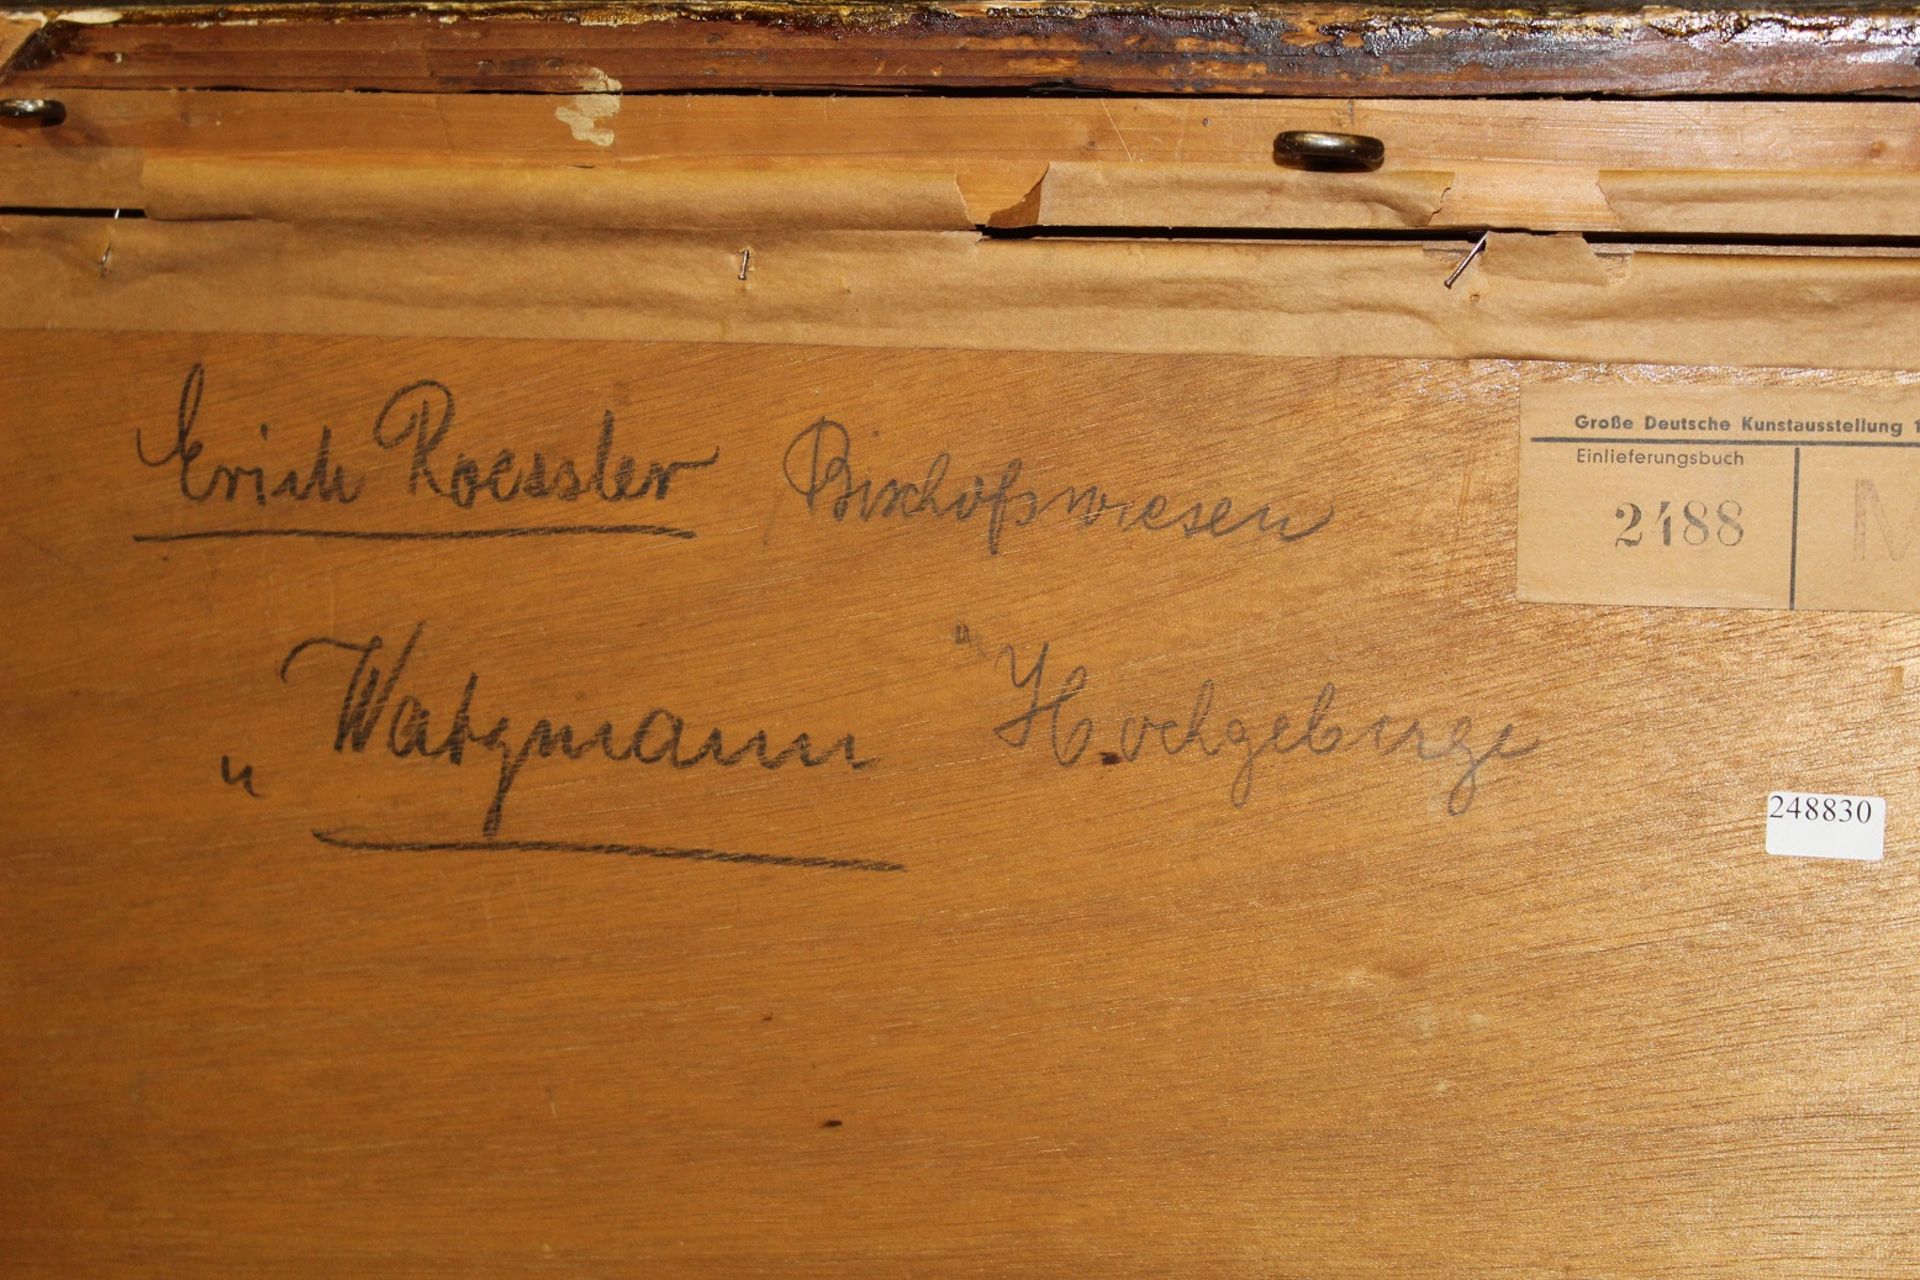 Erich Roessler Bischofswiesen
„Watzmann" Hochgebirge
Große Deutsche Kunstausstellung 1
Einlieferungsbuch
2488
M
248830